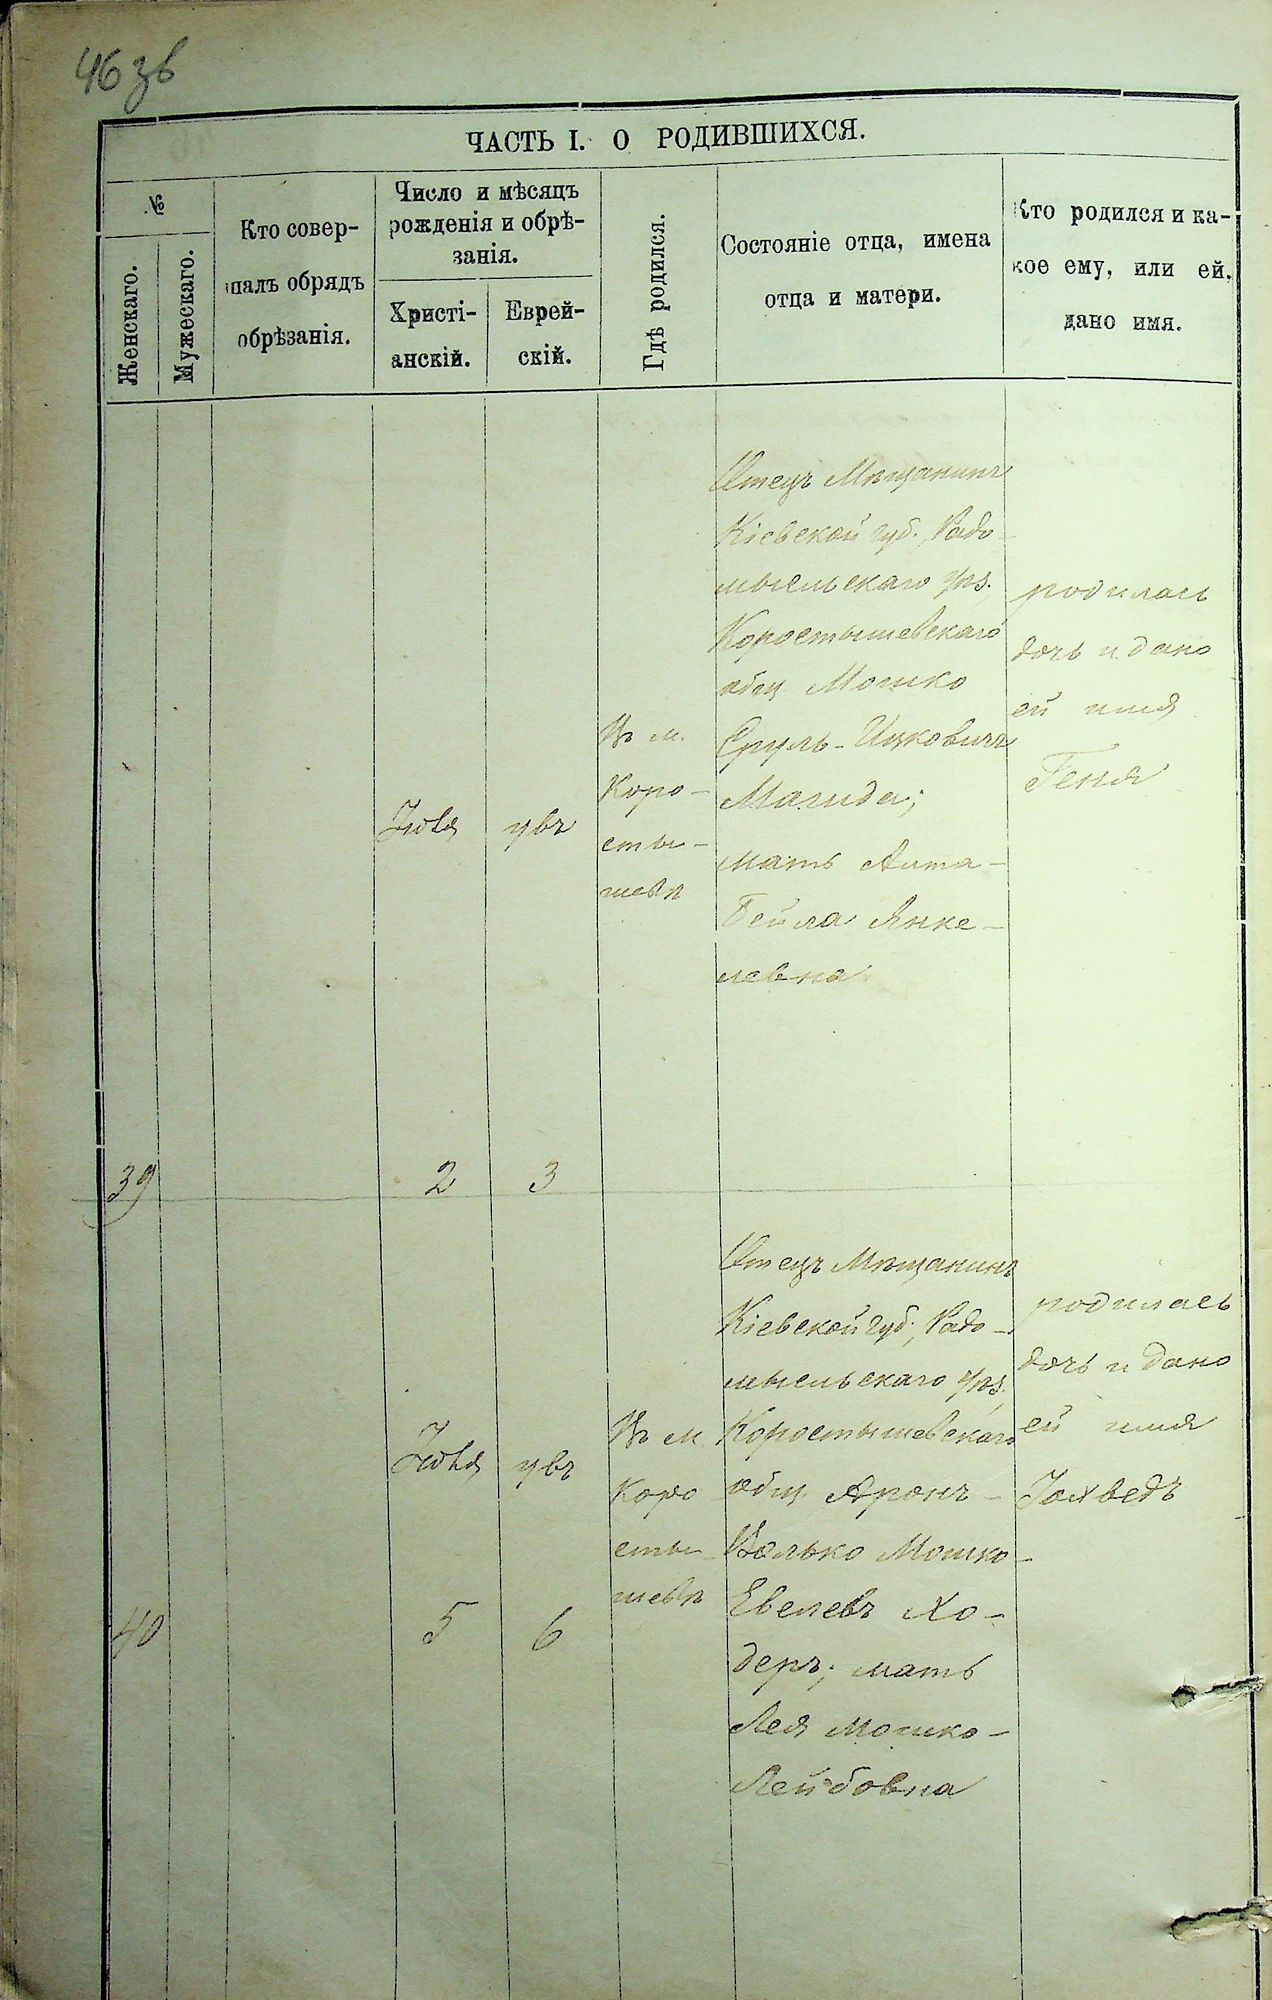 46 зв
ЧАСТЬ I. О РОДИВШИХСЯ.
№
Женскаго.
Мужескаго.
Кто совер-
шалъ обрядъ
обрѣзанія.
Число и мѣсяцъ
рожденія и обрѣ-
занія.
Христі-
анскій.
Еврей-
скій.
Гдѣ родился.
Состояніе отца, имена
отца и матери.
Кто родился и ка-
кое ему, или ей,
дано имя.
39
Іюля
2
3
Въ м.
Коро-
сты-
шевѣ
Отецъ Мѣщанинъ
Кіевской губ., Радо-
мысльскаго уѣз.
Коростышевскаго
общ. Мошко
Сруль-Ицковичъ
Магида;
мать Алта-
Бейла Янке-
левна
родилась
дочь и дано
ей имя
Геня
40
Іюля
5
6
Въ м.
Коро
сты-
шевѣ
Отецъ Мѣщанинъ
Кіевской губ., Радо-
мысльскаго уѣз.
Коростышевскаго
общ. Аронъ-
Волько Мошко-
Евелевъ Хо-
деръ; мать
Лея Мошко-
Лейбовна
родилась
дочь и дано
ей имя
Іохведъ